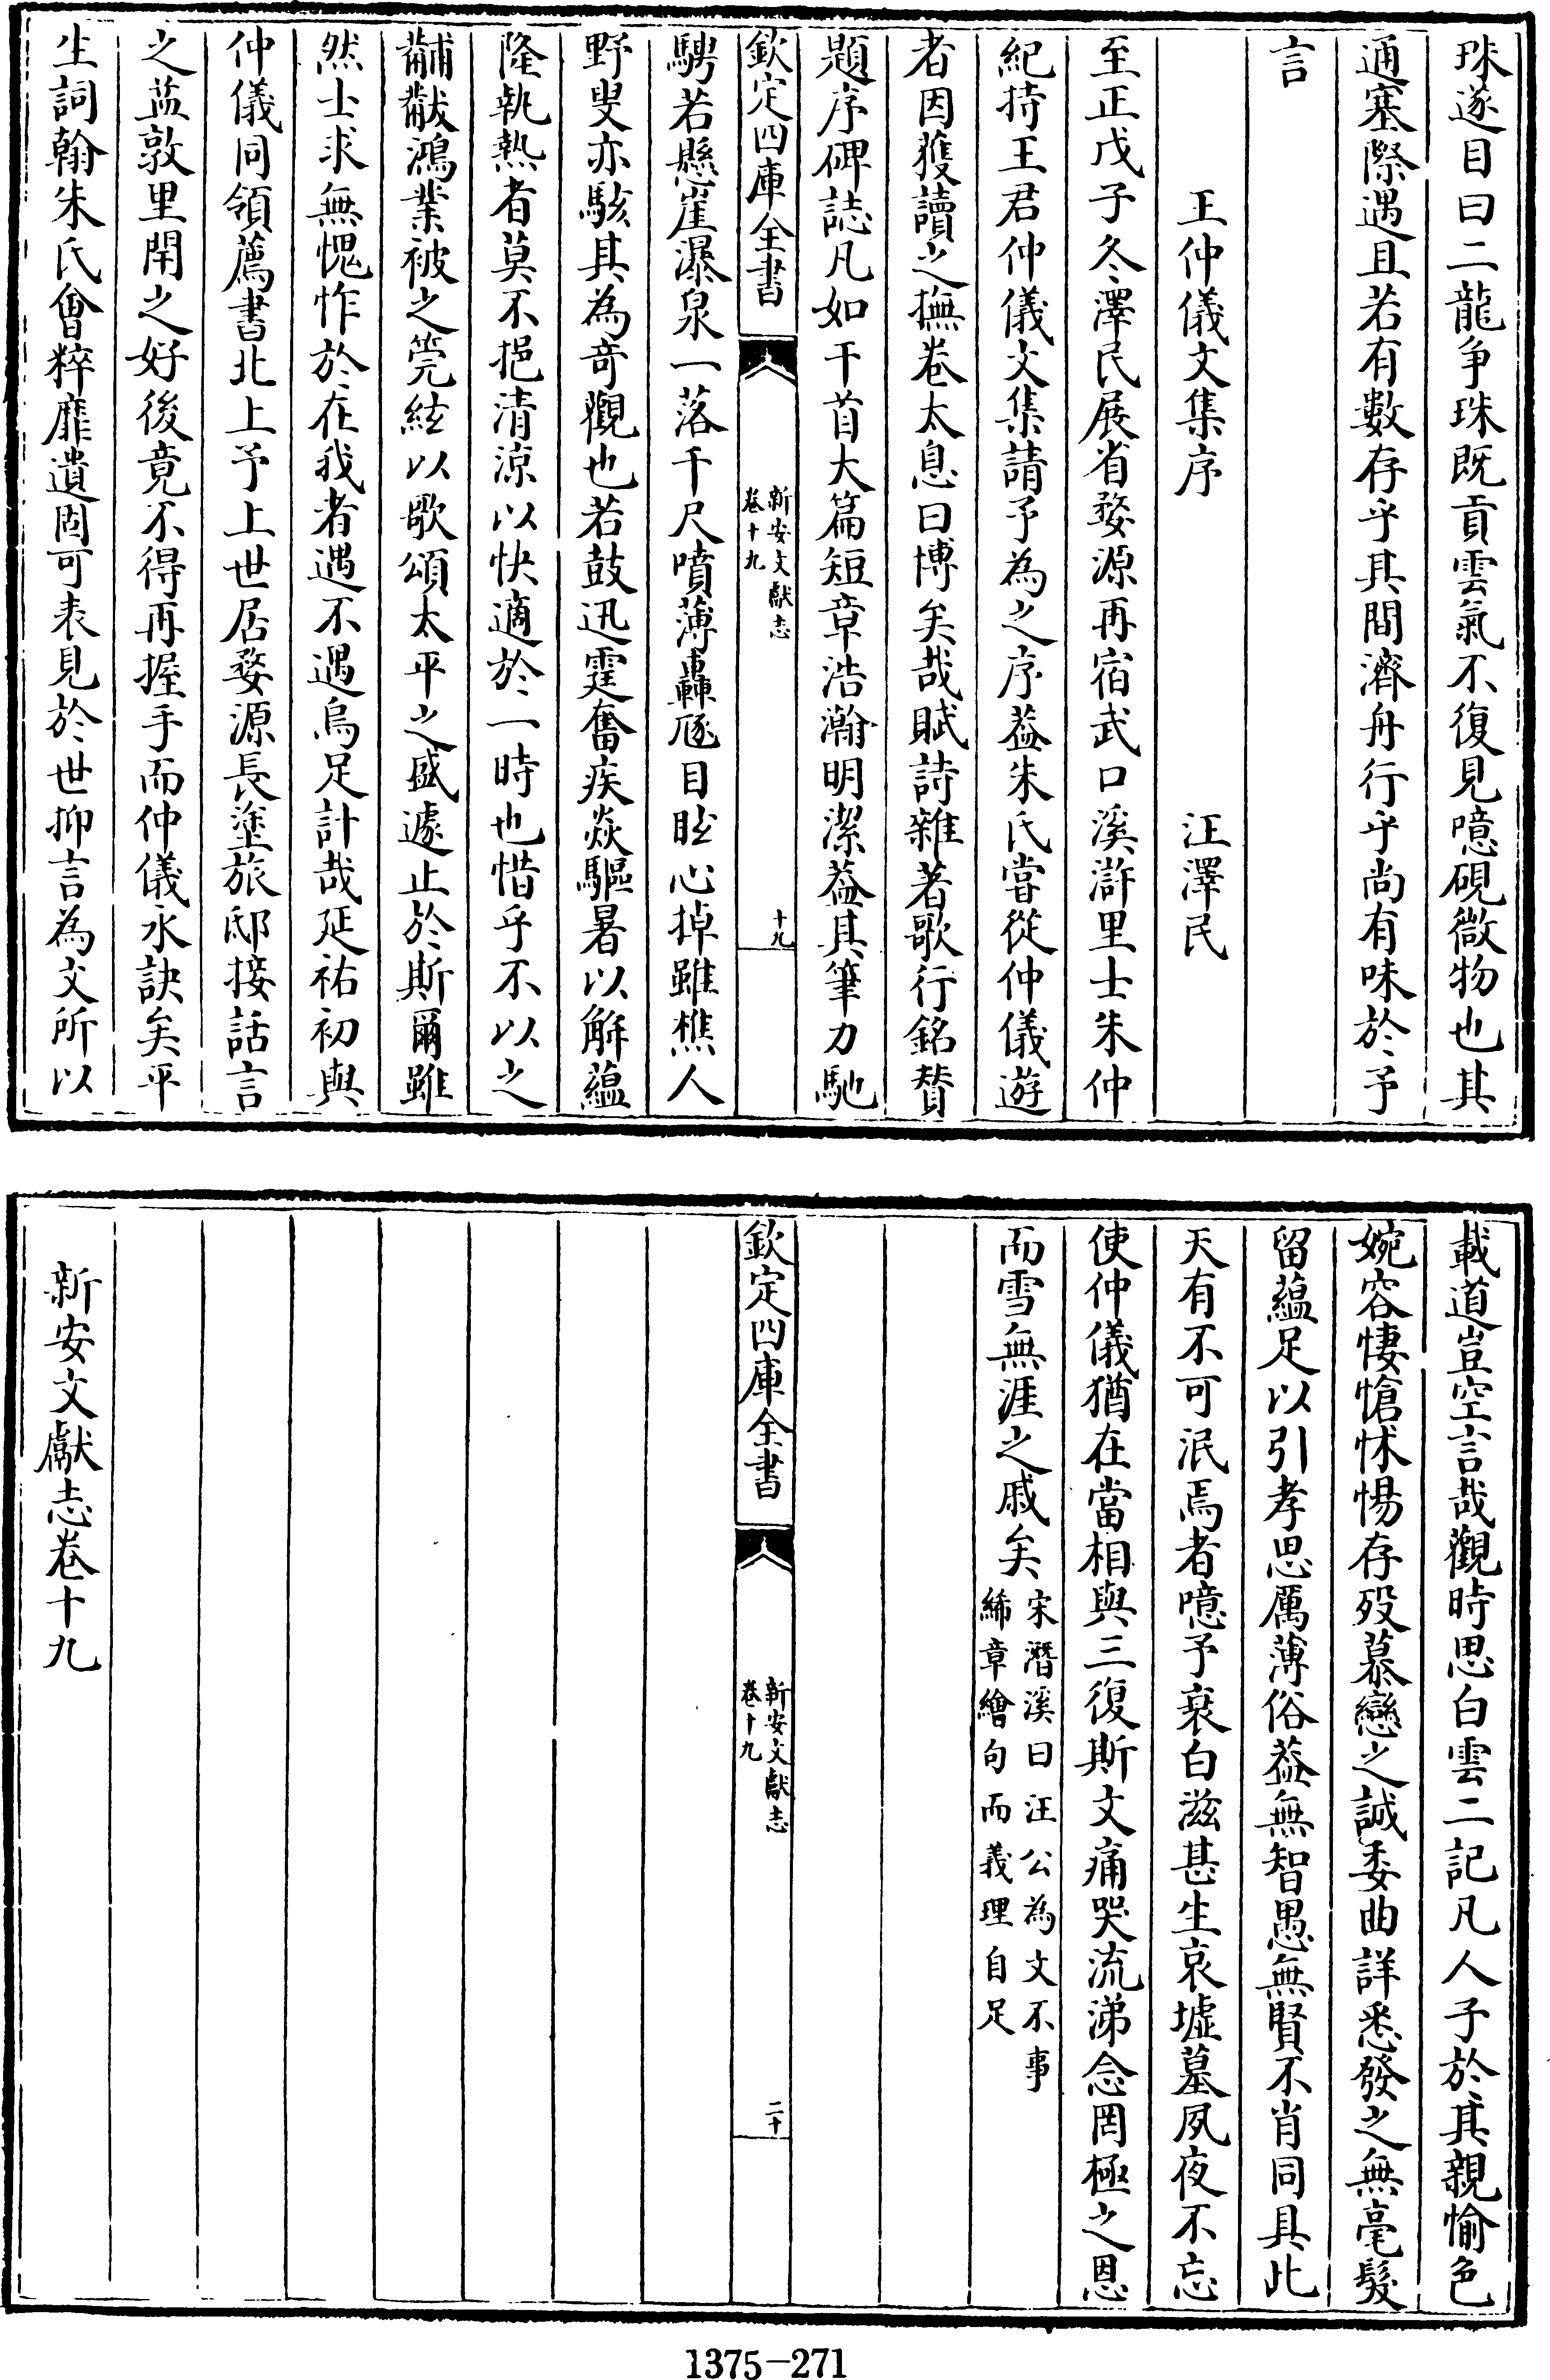 珠遂目曰二龍争珠既貢雲氣不復見噫硯微物也其
通塞際遇且若有數存乎其間濟舟行乎尚有味於予
言
王仲儀文集序　汪澤民
至正戊子冬澤民展省婺源再宿武口溪滸里士朱仲
紀持王君仲儀文集請予為之序葢朱氏嘗從仲儀遊
者因獲讀之撫卷太息曰博矣哉賦詩雜著歌行銘贊
題序碑誌凡如干首大篇短章浩瀚明潔葢其筆力馳
欽定四庫全書
新安文獻志
卷十九
十九
騁若懸崖瀑泉一落千尺噴薄轟豗目眩心掉雖樵人
野叟亦駭其為奇觀也若鼓迅霆奮疾焱驅暑以解蘊
隆執熱者莫不挹清涼以快適於一時也惜乎不以之
黼黻鴻業被之筦絃以歌頌太平之盛遽止於斯爾雖
然士求無愧怍於在我者遇不遇烏足計哉延祐初與
仲儀同領薦書北上予上世居婺源長塗旅邸接話言
之益敦里閈之好後竟不得再握手而仲儀永訣矣平
生詞翰朱氏會稡靡遺固可表見於世抑言為文所以
載道豈空言哉觀時思白雲二記凡人子於其親愉色
婉容悽愴怵惕存歿慕戀之誠委曲詳悉發之無毫髮
留蘊足以引孝思厲薄俗葢無智愚無賢不肖同具此
天有不可泯焉者噫予衰白滋甚生哀墟墓夙夜不忘
使仲儀猶在當相與三復斯文痛哭流涕念罔極之恩
而雪無涯之戚矣
宋潛溪曰汪公為文不事
絺章繪句而義理自足
欽定四庫全書
新安文獻志
卷十九
二十
新安文獻志卷十九
1375-271